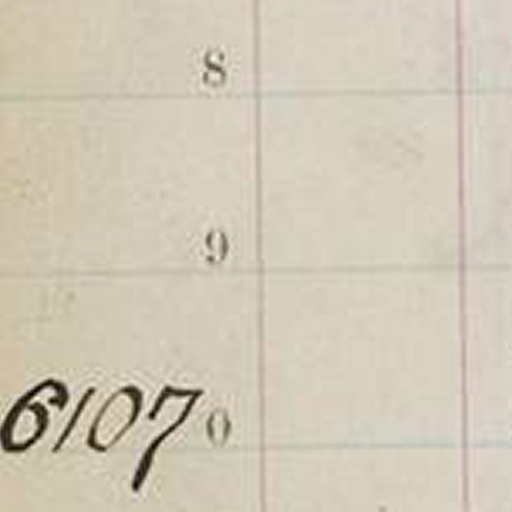 8
9
61070